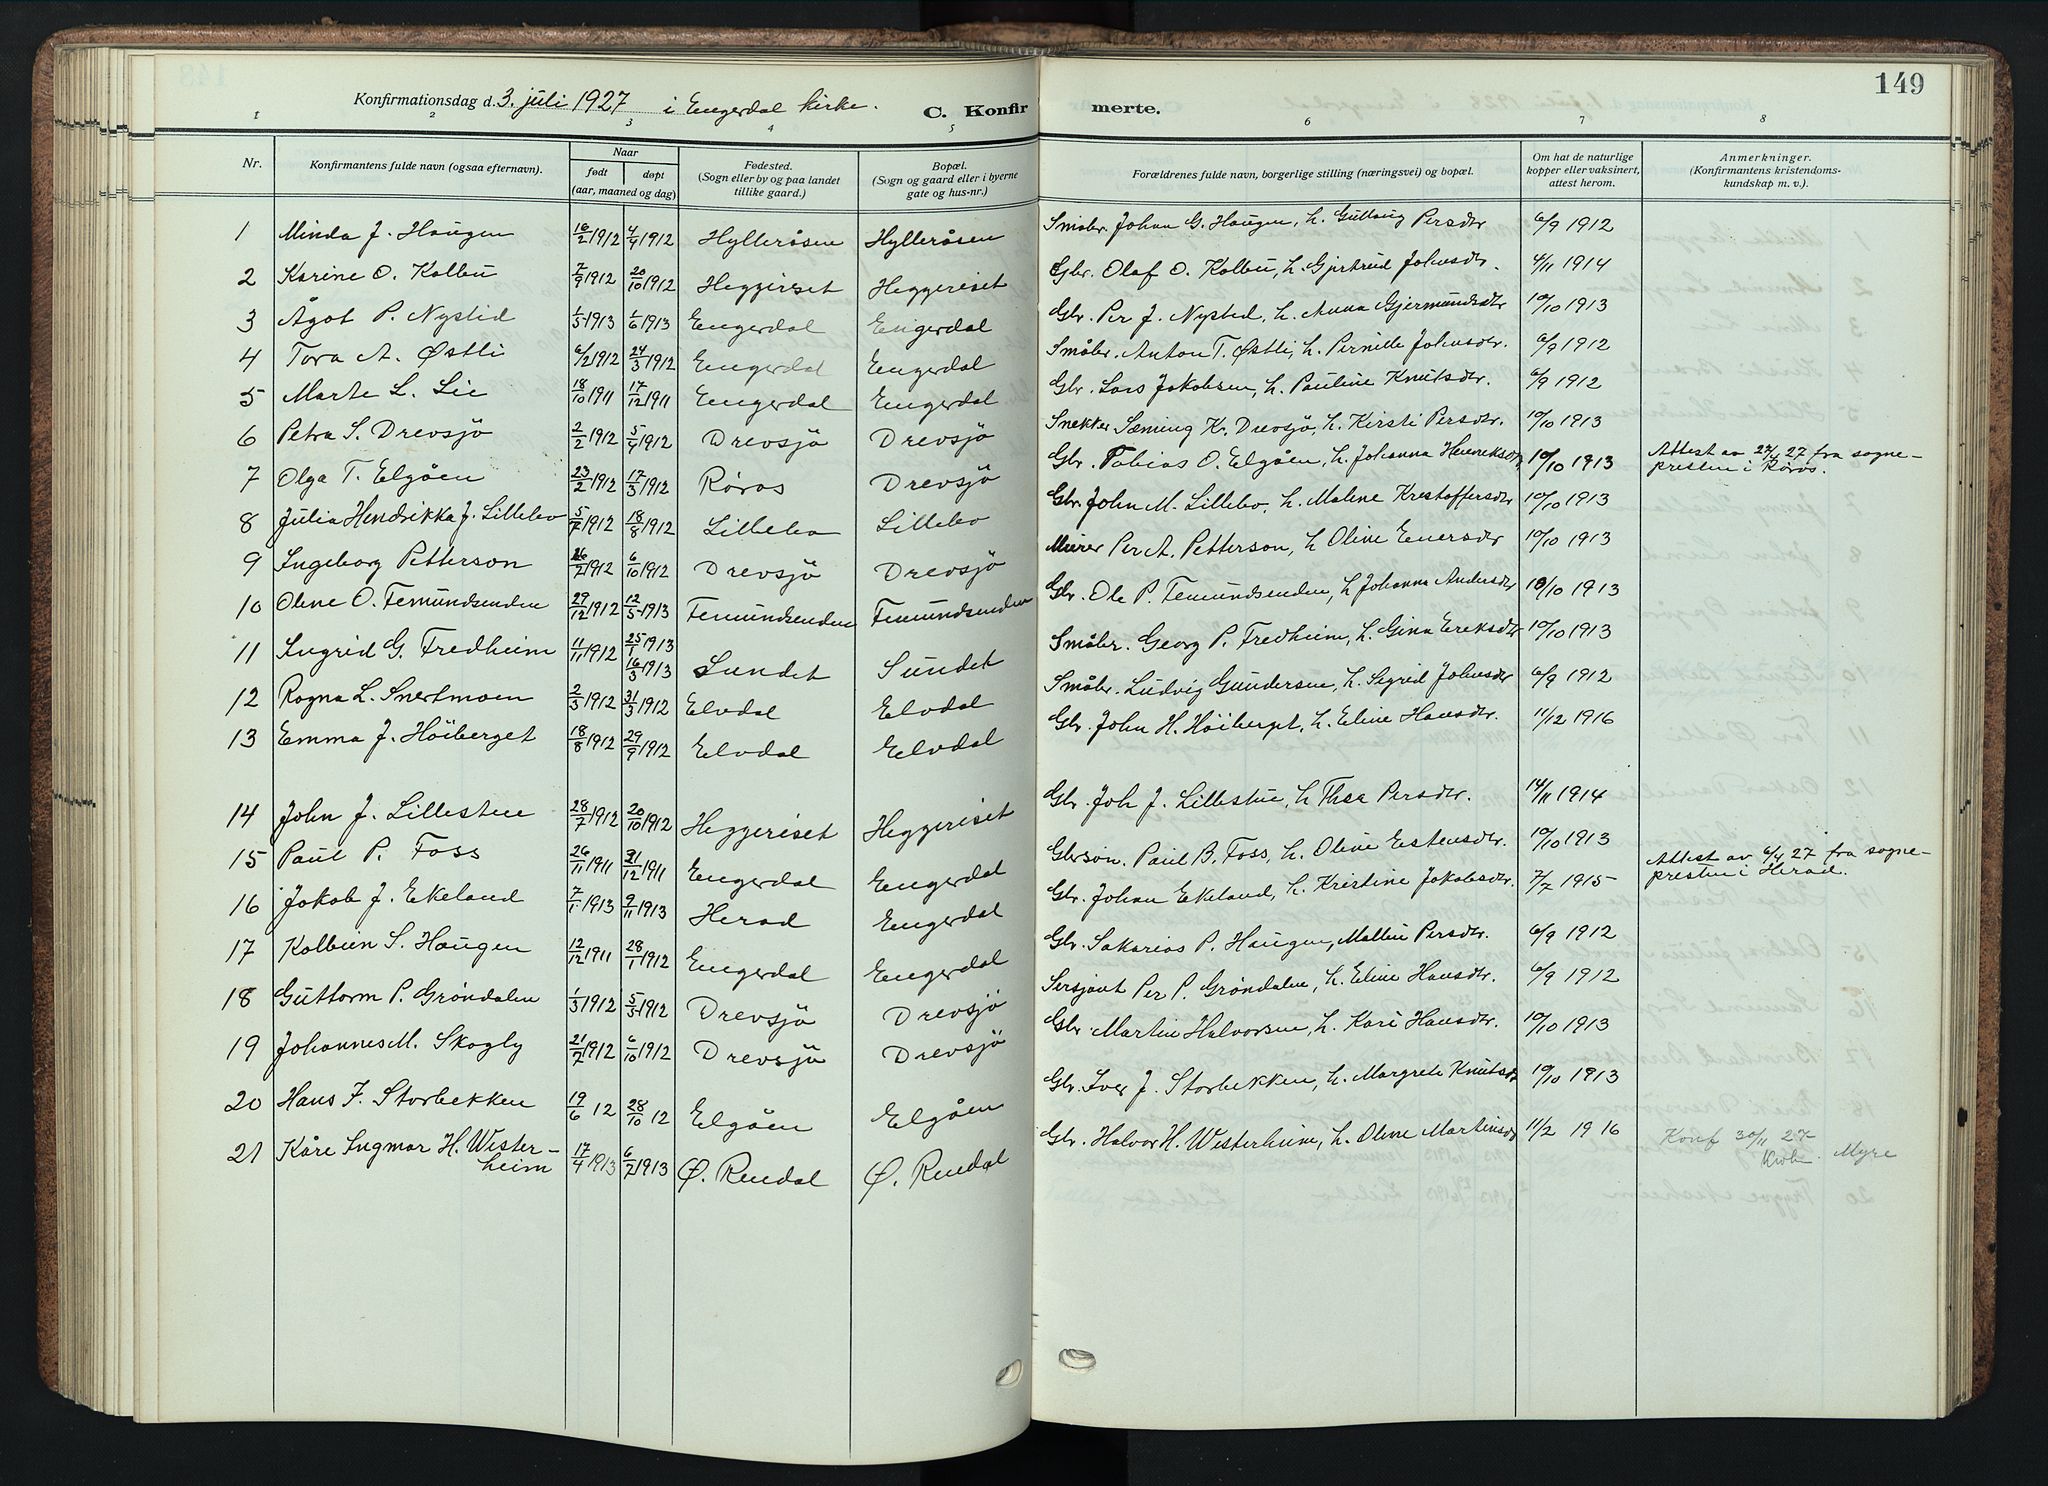 149
Konfirmationsdag d. 3. juli 1927 i Engerdal kirke.
C. Konfirmerte.
1 2 3 4 5 6 7 8
Nr. Konfirmantens fulde navn (ogsaa efternavn). Naar født døpt (aar, maaned og dag) Fødested. (Sogn eller by og paa landet tillike gaard.) Bopæl. (Sogn og gaard eller i byerne gate og hus-nr.) Forældrenes fulde navn, borgerlige stilling (næringsvei) og bopæl. Om hat de naturlige kopper eller vaksinert, attest herom. Anmerkninger. (Konfirmantens kristendomskundskap m. v.).
1 Minda J. Haugen 16/2 1912 4/4 1912 Hylleråsen Hylleråsen Småbr. Johan G. Haugen, h. Guttaug Persdtr 6/9 1912
2 Karine O. Kolbu 7/9 1912 20/10 1912 Heggeriset Heggeriset Gbr. Olaf O. Kolbu, h. Gjertrud Johnsdtr. 4/11 1914
3 Ågot P. Nysted 1/5 1913 1/6 1913 Engerdal Engerdal Gbr. Per J. Nysted, h. Anna Gjermundsdtr 10/10 1913
4 Tora A. Østli 6/2 1912 24/3 1912 Engerdal Engerdal Småbr. Anton T. Østli, h. Pernille Johnsdtr. 6/9 1912
5 Marte L. Lie 18/10 1911 17/12 1911 Engerdal Engerdal Gbr. Lars Jakobsen, h. Pauline Knutsdtr. 6/9 1912
6 Petra S. Drevsjö 2/2 1912 5/4 1912 Drevsjö Drevsjö Snekker Sæming K. Drevsjø, h. Kirsti Persdtr. 10/10 1913
7 Olga T. Elgåen 23/2 1912 17/3 1912 Røros Drevsjö Gbr. Tobias O. Elgåen, h. Johanna Henriksdtr 10/10 1913 Attest av 27 fra sogne-
presten i Røros.
8 Julia Hendrikka J. Lillebo 5/7 1912 18/8 1912 Lillebo Lillebo Gbr. John M. Lillebo, h. Malene Krestoffersdtr 10/10 1913
9 Ingeborg Petterson 26/7 1912 6/10 1912 Drevsjö Drevsjö Murer Per A. Petterson, h Oline Enersdtr 10/10 1913
10 Olene O. Femundsenden 29/12 1912 12/5 1913 Femundsenden Femundsenden Gbr. Ole P. Femundsenden, h Johanna Andersdtr 10/10 1913
11 Ingrid G. Fredheim 11/11 1912 25/1 1913 16/3 1913 Sundet Sundet Småbr. Georg P. Fredheim, h. Gina Ereksdtr 10/10 1913
12 Ragna L. Snertmoen 2/3 1912 31/3 1912 Elvdal Elvdal Småbr. Ludvig Gundersen, h. Sigrid Johnsdtr 6/9 1912
13 Emma J. Höiberget 18/8 1912 29/9 1912 Elvdal Elvdal Gbr. John H. Höiberget, h. Eline Hansdtr. 11/12 1916
14 John J. Lillestue 28/7 1912 20/10 1912 Heggeriset Heggeriset Gbr. Joh J. Lillestue, h Thea Persdtr. 14/11 1914
15 Paul P. Foss 26/11 1911 31/12 1911 Engerdal Engerdal Gbrsøn. Paul B. Foss, h. Oline Estensdtr. 10/10 1913
16 Jakob J. Ekeland 7/1 1913 9/11 1913 Herad Engerdal Gbr. Johan Ekeland, h. Kristine Jakobsdtr. 7/7 1915 Attest av 6/4 27 fra sogne-
presten i Herad.
17 Kolbein S. Haugen 12/12 1911 28/1 1912 Engerdal Engerdal Gbr. Sakarias P. Haugen, Mallin Persdtr. 6/9 1912
18 Guttorm P. Grøndalen 1/3 1912 5/5 1912 Drevsjö Drevsjö Sersjant Per P. Grøndalen, h. Eline Hansdtr. 6/9 1912
19 Johannes M. Skogly 21/7 1912 6/10 1912 Drevsjö Drevsjö Gbr. Martin Halvorsen, h. Kari Hansdtr. 10/10 1913
20 Hans I. Storbekken 19/6 12 28/10 12 Elgåen Elgåen Gbr. Iver J. Storbekken, h. Margrete Knutsdtr 10/10 1913
21 Kåre Ingmar H. Wester-
heim 17/4 1913 6/7 1913 Ø. Rendal Ø. Rendal Gbr. Halvor H. Westerheim, h. Oline Martinsdtr 11/2 1916 Konf 30/11 27
Myre